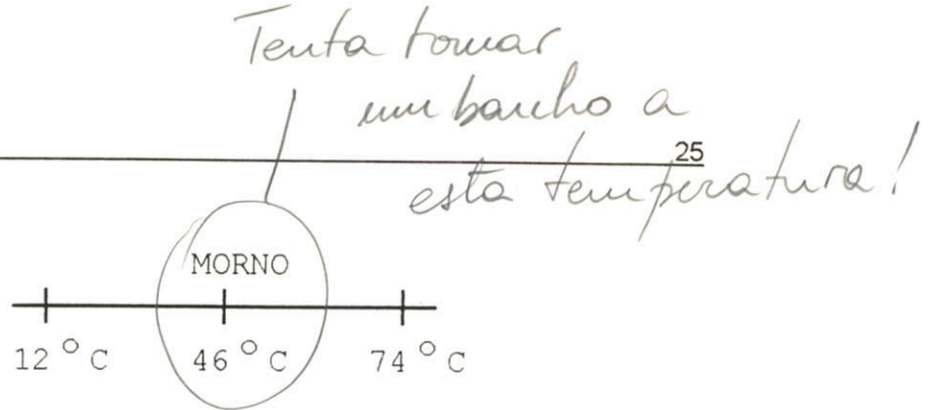 Tenta tomar
um banho a
25
esta temperatura!
MORNO
12 °C 46 °C 74 °C